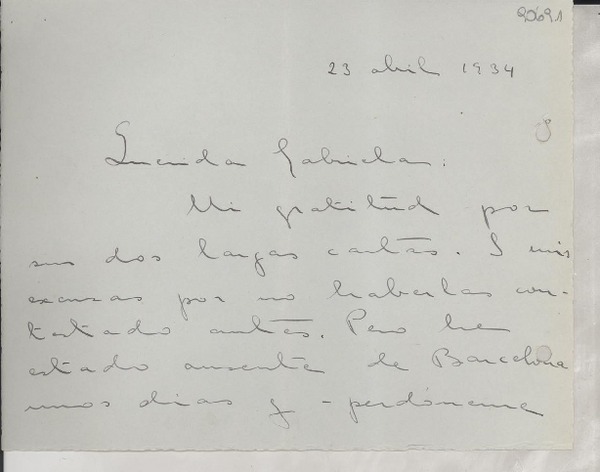 9069.1
23 abril 1934
Querida Gabriela:
Mi gratitud por
sus dos largas cartas. I mis
excusas por no haberlas con-
testado antes. Pero he
estado ausente de Barcelona
unos dias y - perdóneme